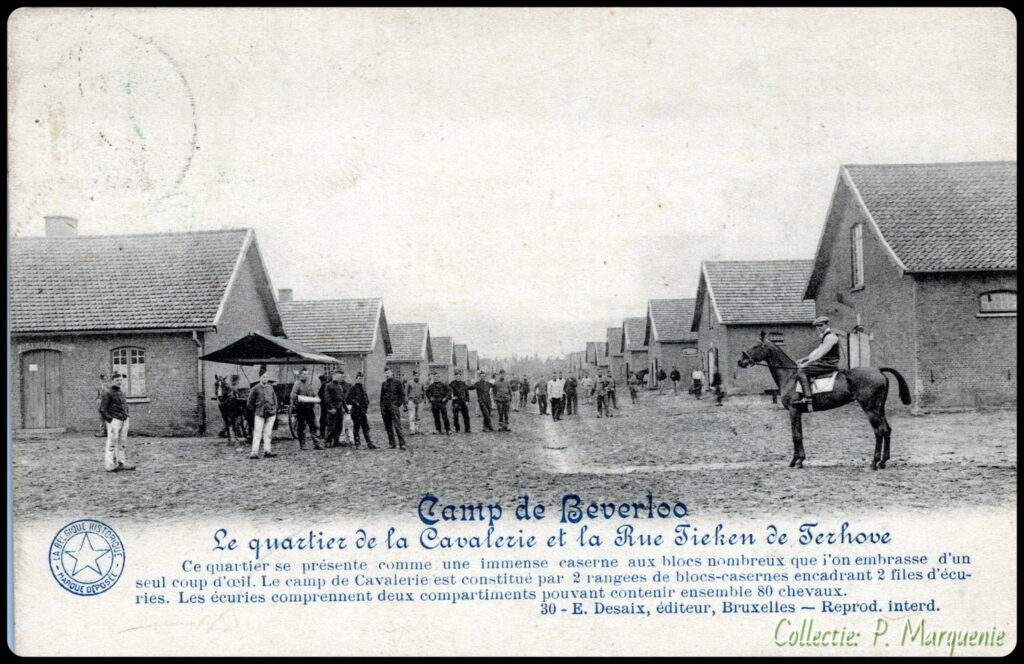 Camp de Beverloo
Le quartier de la Cavalerie et la Rue Tieken de Terhove
Ce quartier se présente comme une immense caserne aux blocs nombreux que i'on embrasse d'un
seul coup d'œil. Le camp de Cavalerie est constitué par 2 rangees de blocs-casernes encadrant 2 files d'écu-
ries. Les écuries comprennent deux compartiments pouvant contenir ensemble 80 chevaux.
30 - E. Desaix, éditeur, Bruxelles — Reprod. interd.
LA BELGIQUE HISTORIQUE
MARQUE DÉPOSÉE
Collectie: P. Marquenie